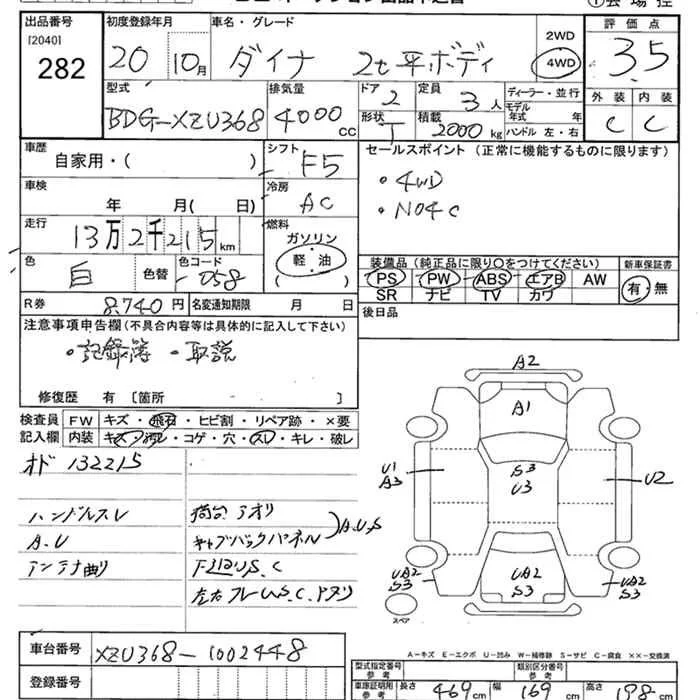 出品番号 初度登録年月 車名・グレード 2WD 評価点
[2040] 282 20 10月 ダイナ 2t平ボディ 4WD 3.5
型式 排気量 ドア 定員 ディーラー・並行 外装 内装
BDG-XZU368 4000cc 2 3人 モデル年式 年
形状 積載 2000kg ハンドル 左・右 C C
車歴 自家用・( ) シフト F5 セールスポイント (正常に機能するものに限ります)
車検 年 月( 日) 冷房 AC ・4WD
・N04C
走行 13万2千215km 燃料 ガソリン 軽・油 ( )
装備品 (純正品に限り○をつけてください) 新車保証書
色 白 色替 色コード 058 PS PW ABS エアB AW 有・無
SR ナビ TV カワ
R券 8,740円 名変通知期限 月 日 後日品
注意事項申告欄(不具合内容等は具体的に記入して下さい)
・記録簿 ・取説
修復歴 有 [箇所 ]
検査員 FW キズ・飛石・ヒビ割・リペア跡・×要
記入欄 内装 キズ・汚レ・コゲ・穴・スレ・キレ・破レ
オド 132215
ハンドルスレ 荷台アオリ
A.U キャブバックパネル A.U.S
アンテナ曲り 下廻りS.C
左右フレームS.C.アオリ
A2
A1
U1
A3
S3
U3
U2
UA2
S3
UA2
S3
UA2
S3
スペア
A-キズ E-エクボ U-凹み W-補修跡 S-サビ C-腐食 ××-交換済
車台番号 XZU368-1002448
登録番号
型式指定番号 参考 類別区分番号 参考
車庫証明用 参考 長さ 469cm 幅 169cm 高さ 198cm